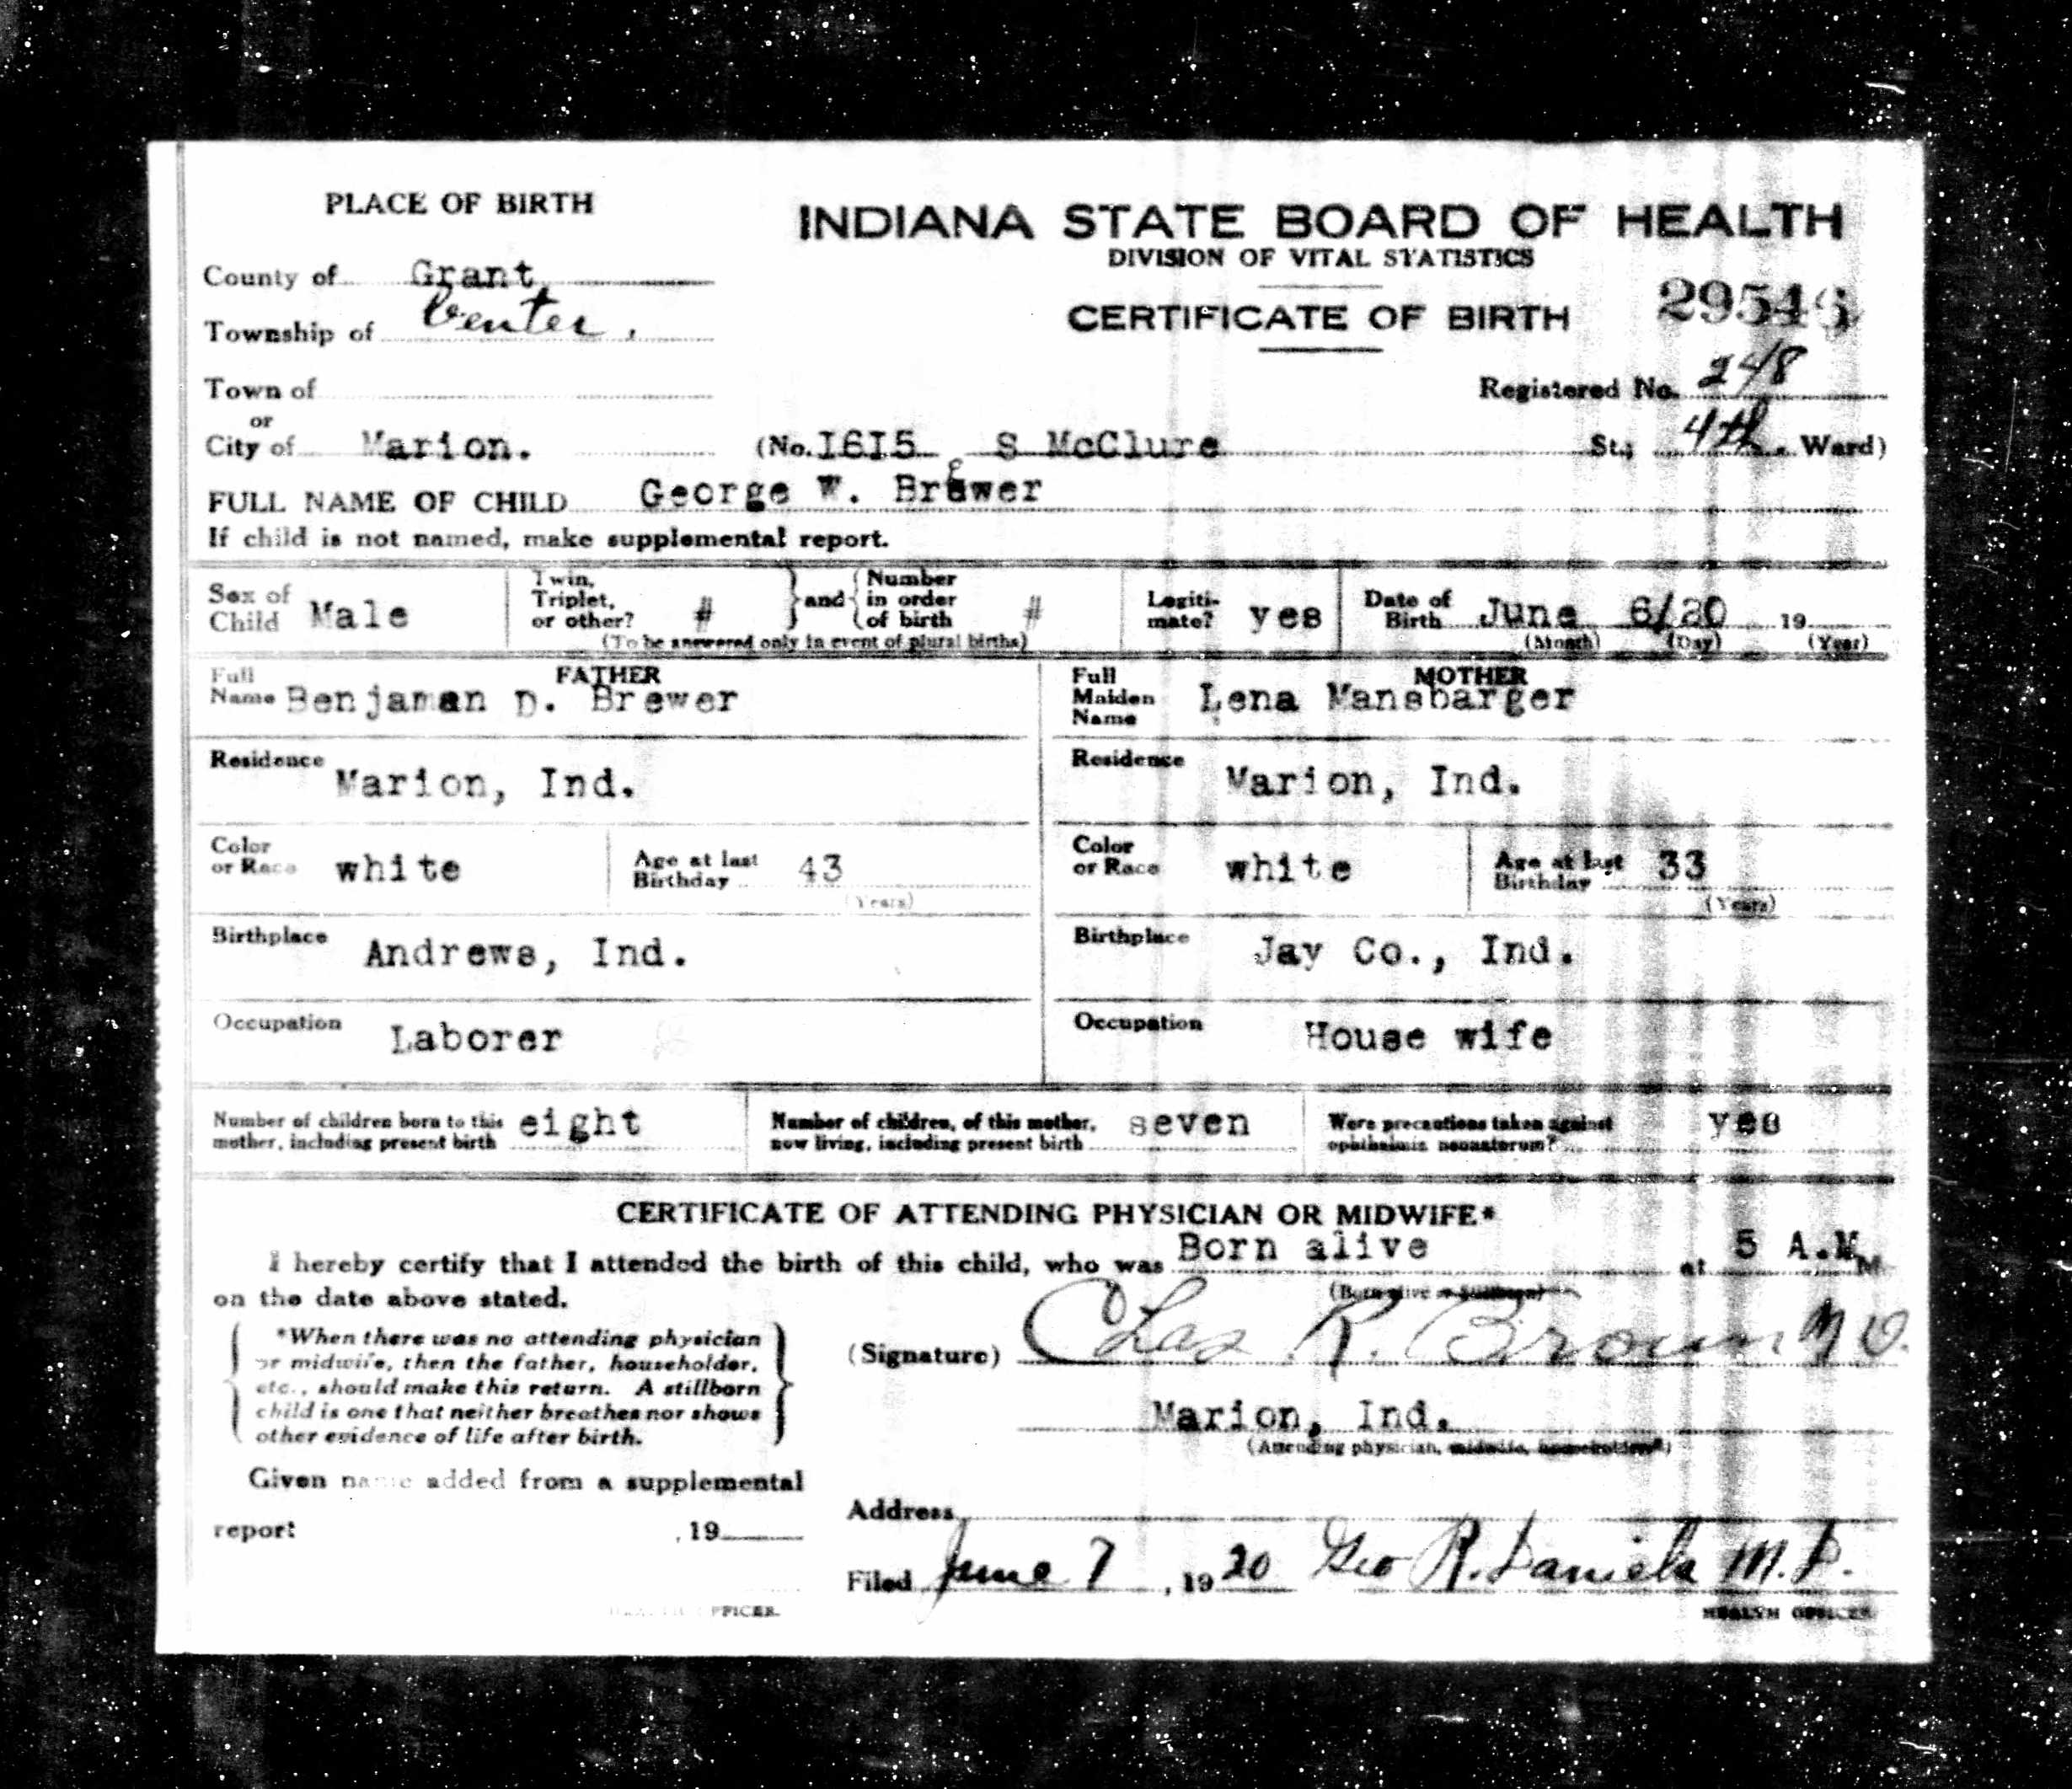 PLACE OF BIRTH
INDIANA STATE BOARD OF HEALTH
DIVISION OF VITAL STATISTICS
CERTIFICATE OF BIRTH
County of Grant
Township of Center,
Town of
or
City of Marion. (No. I6I5 S McClure St.; 4th. Ward)
Registered No. 248
FULL NAME OF CHILD George W. Brewer
If child is not named, make supplemental report.
Sex of Child Male
Twin, Triplet, or other? # and Number in order of birth #
(To be answered only in event of plural births)
Legitimate? yes
Date of Birth June 6/20 19
(Month) (Day) (Year)
FATHER
Full Name Benjaman D. Brewer
Residence Marion, Ind.
Color or Race white
Age at last Birthday 43
(Years)
Birthplace Andrews, Ind.
Occupation Laborer
MOTHER
Full Maiden Name Lena Mansbarger
Residence Marion, Ind.
Color or Race white
Age at last Birthday 33
(Years)
Birthplace Jay Co., Ind.
Occupation House wife
Number of children born to this mother, including present birth eight
Number of children, of this mother, now living, including present birth seven
Were precautions taken against ophthalmia neonatorum? yes
CERTIFICATE OF ATTENDING PHYSICIAN OR MIDWIFE*
I hereby certify that I attended the birth of this child, who was Born alive at 5 A.M M.
(Born alive or Stillborn)
on the date above stated.
*When there was no attending physician
or midwife, then the father, householder,
etc., should make this return. A stillborn
child is one that neither breathes nor shows
other evidence of life after birth.
(Signature) Chas R. Brown M D.
Marion, Ind.
(Attending physician, midwife, householder*)
Given name added from a supplemental
report , 19
Address
Filed June 7, 1920 Geo R. Daniels M.D.
HEALTH OFFICER
HEALTH OFFICER.